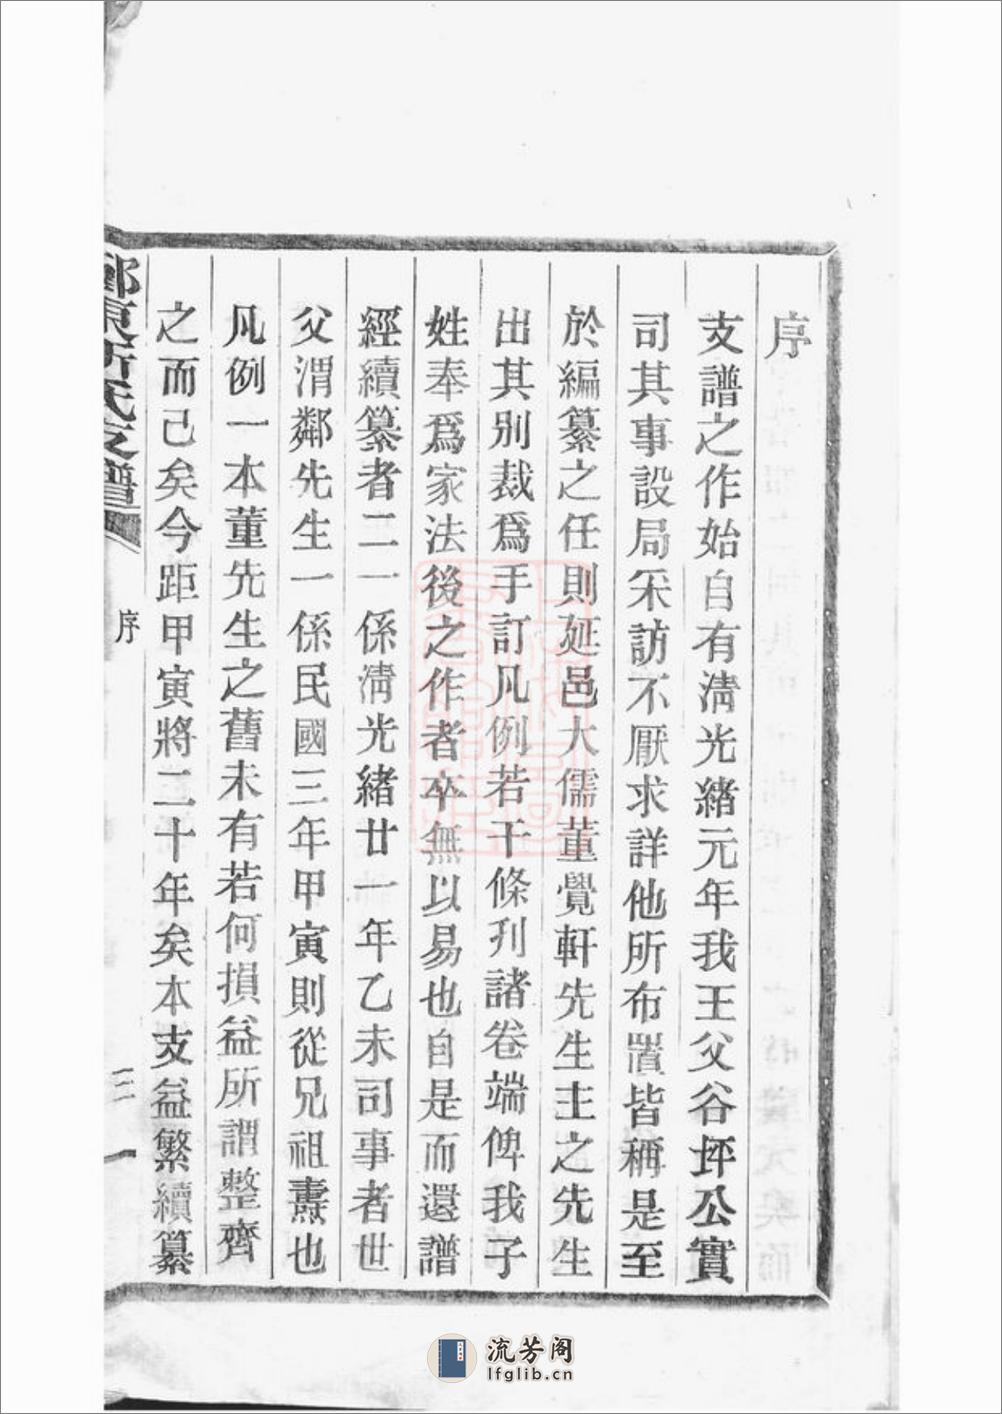 序
支譜之作始自有清光緒元年我王父谷坪公實
司其事設局采訪不厭求詳他所布置皆稱是至
於編纂之任則延邑大儒董覺軒先生主之先生
出其別裁爲手訂凡例若干條刋諸卷端俾我子
姓奉爲家法後之作者卒無以易也自是而還譜
經續纂者二一係淸光緒廿一年乙未司事者世
父渭鄰先生一係民國三年甲寅則從兄祖燾也
凡例一本董先生之舊未有若何損益所謂整齊
之而己矣今距甲寅將二十年矣本支益繁續纂
東 氏支譜
序
一
流芳阁
lfglib.cn